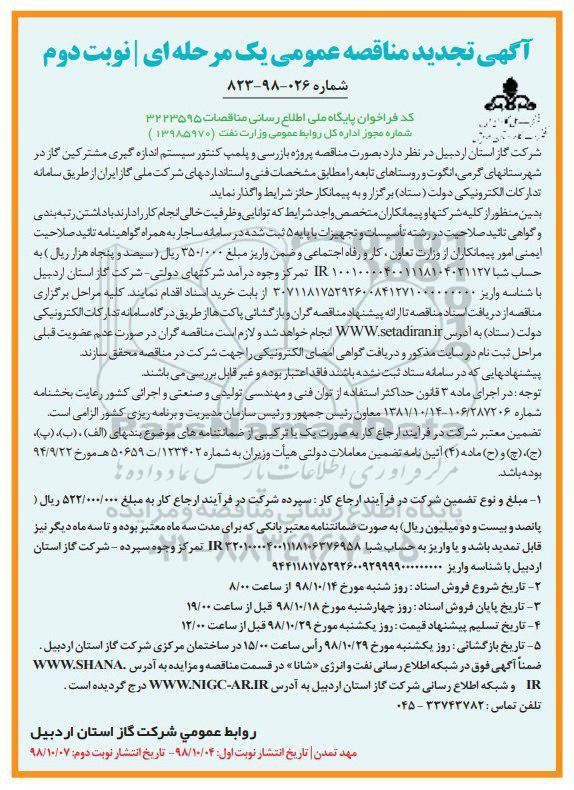 آگهی تجدید مناقصه عمومی یک مرحله ای | نوبت دوم
شماره ۰۲۶-۹۸-۸۲۳
کد فراخوان پایگاه ملی اطلاع رسانی مناقصات ۳۲۲۳۵۹۵
شماره مجوز اداره کل روابط عمومی وزارت نفت (۱۳۹۸۵۹۷۰)
شرکت گاز استان اردبیل در نظر دارد بصورت مناقصه پروژه بازرسی و پلمپ کنتور سیستم اندازه گیری مشترکین گاز در
شهرستانهای گرمی، انگوت و روستاهای تابعه را مطابق مشخصات فنی و استانداردهای شرکت ملی گاز ایران از طریق سامانه
تدارکات الکترونیکی دولت (ستاد) برگزار و به پیمانکار حائز شرایط واگذار نماید.
بدین منظور از کلیه شرکتها و پیمانکاران متخصص واجد شرایط که توانایی و ظرفیت خالی انجام کار را دارند با داشتن رتبه بندی
و گواهی تائید صلاحیت در رشته تأسیسات و تجهیزات با پایه ۵ ثبت شده در سامانه ساجار به همراه گواهینامه تائید صلاحیت
ایمنی امور پیمانکاران از وزارت تعاون ، کار و رفاه اجتماعی و ضمن واریز مبلغ ۳۵۰/۰۰۰ ریال ( سیصد و پنجاه هزار ریال ) به
حساب شبا IR ۱۰۰۱۰۰۰۰۴۰۰۱۱۱۸۱۰۴۰۲۱۱۲۷ تمرکز وجوه درآمد شرکتهای دولتی- شرکت گاز استان اردبیل
با شناسه واریز ۳۰۷۱۱۸۱۷۵۲۹۲۶۰۰۸۴۱۲۷۱۰۰۰۰۰۰۰۰۰۰ از بابت خرید اسناد اقدام نمایند. کلیه مراحل برگزاری
مناقصه از دریافت اسناد مناقصه تا ارائه پیشنهاد مناقصه گران و بازگشائی پاکت ها از طریق درگاه سامانه تدارکات الکترونیکی
دولت (ستاد) به آدرس WWW.setadiran.ir انجام خواهد شد و لازم است مناقصه گران در صورت عدم عضویت قبلی
مراحل ثبت نام در سایت مذکور و دریافت گواهی امضای الکترونیکی را جهت شرکت در مناقصه محقق سازند.
پیشنهادهایی که در سامانه ستاد ثبت نشده باشند فاقد اعتبار بوده و غیر قابل بررسی می باشند.
توجه : در اجرای ماده ۳ قانون حداکثر استفاده از توان فنی و مهندسی تولیدی و صنعتی و اجرائی کشور رعایت بخشنامه
شماره ۱۰۶/۲۸۷۲۰۶-۱۳۸۱/۱۰/۱۴ معاون رئیس جمهور و رئیس سازمان مدیریت و برنامه ریزی کشور الزامی است.
تضمین معتبر شرکت در فرآیند ارجاع کار به صورت یک یا ترکیبی از ضمانتنامه های موضوع بندهای (الف) ، (ب)، (پ)،
(ج)، (چ) و (ح) ماده (۴) آئین نامه تضمین معاملات دولتی هیأت وزیران به شماره ۱۲۳۴۰۲/ت ۵۰۶۵۹ هـ مورخ ۹۴/۹/۲۲
بوده باشد.
۱- مبلغ و نوع تضمین شرکت در فرآیند ارجاع کار : سپرده شرکت در فرآیند ارجاع کار به مبلغ ۵۲۲/۰۰۰/۰۰۰ ریال (
پانصد و بیست و دو میلیون ریال) به صورت ضمانتنامه معتبر بانکی که برای مدت سه ماه معتبر بوده و تا سه ماه دیگر نیز
قابل تمدید باشد و یا واریز به حساب شبا IR ۳۲۰۱۰۰۰۰۴۰۰۱۱۱۸۱۰۶۳۷۶۹۵۸ تمرکز وجوه سپرده - شرکت گاز استان
اردبیل با شناسه واریز ۹۴۴۱۱۸۱۷۵۲۹۲۶۰۰۹۲۹۹۹۹۰۰۰۰۰۰۰۰۰
۲- تاریخ شروع فروش اسناد : روز شنبه مورخ ۹۸/۱۰/۱۴ از ساعت ۸/۰۰
۳- تاریخ پایان فروش اسناد : روز چهارشنبه مورخ ۹۸/۱۰/۱۸ قبل از ساعت ۱۹/۰۰
۴- تاریخ تسلیم پیشنهاد قیمت : روز یکشنبه مورخ ۹۸/۱۰/۲۹ قبل از ساعت ۱۲/۰۰
۵- تاریخ بازگشائی : روز یکشنبه مورخ ۹۸/۱۰/۲۹ رأس ساعت ۱۵/۰۰ در ساختمان مرکزی شرکت گاز استان اردبیل .
ضمناً آگهی فوق در شبکه اطلاع رسانی نفت و انرژی «شانا» در قسمت مناقصه و مزایده به آدرس WWW.SHANA.
IR و شبکه اطلاع رسانی شرکت گاز استان اردبیل به آدرس WWW.NIGC-AR.IR درج گردیده است .
تلفن تماس : ۳۳۷۴۳۷۸۲ - ۰۴۵
روابط عمومی شرکت گاز استان اردبیل
مهد تمدن | تاریخ انتشار نوبت اول: ۹۸/۱۰/۰۴ - تاریخ انتشار نوبت دوم: ۹۸/۱۰/۰۷